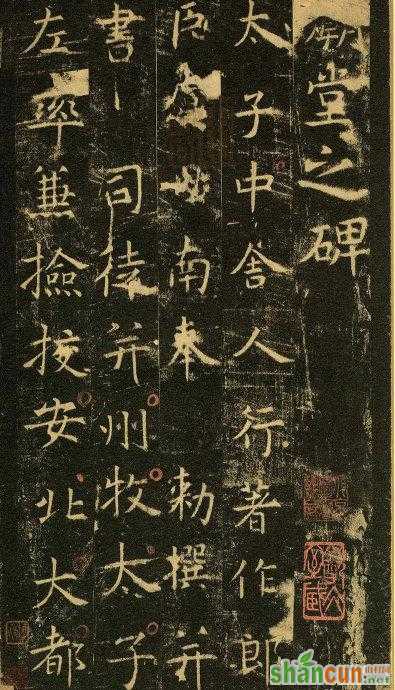 堂之碑
太子中舍人行著作郎
臣虞世南奉 勅撰并
書 司徒并州牧太子
左率兼撿挍安北大都
shancun
.net